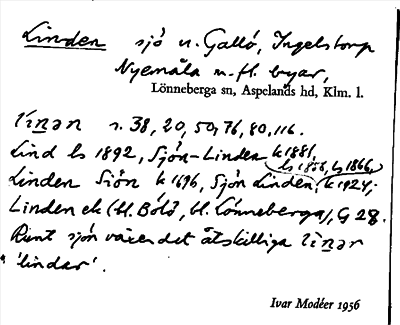 Linden sjö n. Gallö, Ingelstorp
Nyemåla m. fl. byar,
Lönneberga sn, Aspelands hd, Klm. l.
linən s. 38, 20, 50, 76, 80, 116.
Lind ls 1892, Sjön-Linden k 1881,
ls 1858, ls 1866,
Linden Siön k 1696, Sjön Linden, k 1924;
Linden ek (bl. Bölö, bl. Lönneberga), G 28.
Runt sjön växer det åtskilliga linər
'lindar'.
Ivar Modéer 1956